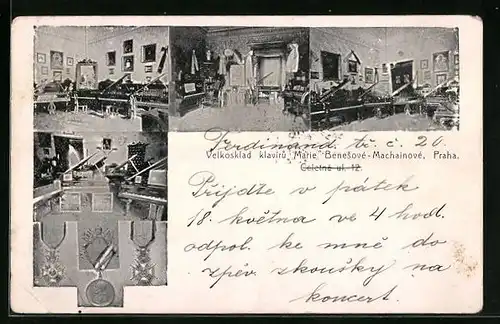 Ferdinand. tř. č. 20.
Velkosklad klavírů, Marie Benešové-Machainové, Praha.
Celetná ul. 12.
Přijdte v pátek
18. května ve 4 hod.
odpol. ke mně do
zpěv. zkoušky na
koncert.